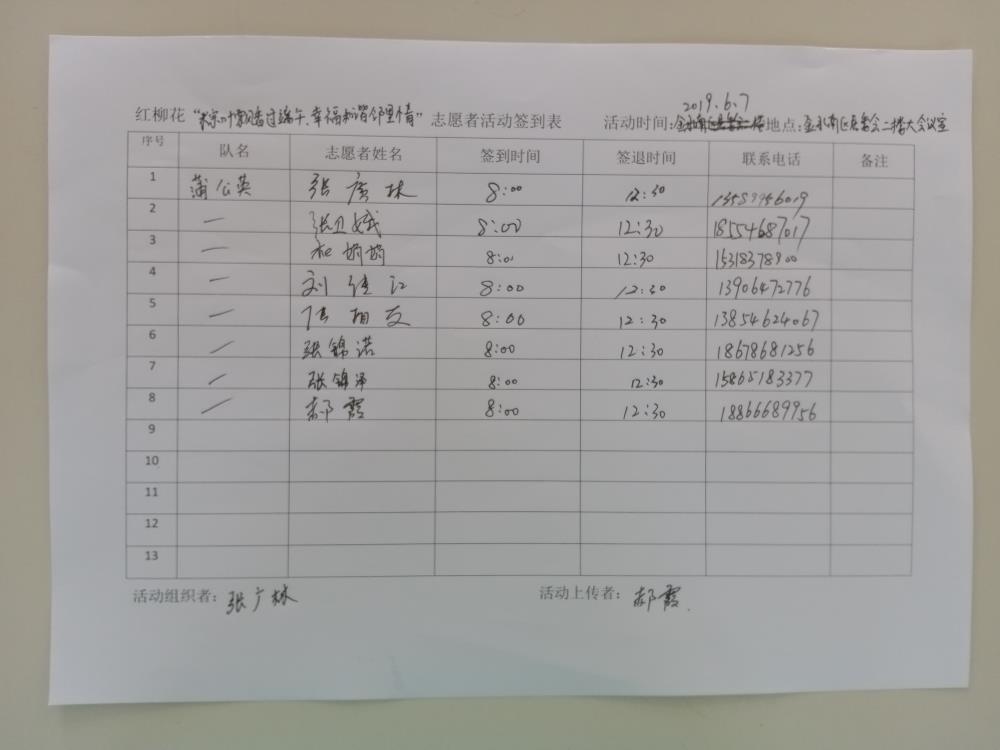 2019.6.7
红柳花 "粽叶飘香过端午、幸福和谐邻里情" 志愿者活动签到表 活动时间: 地点: 金水南区居委会二楼大会议室
序号 队名 志愿者姓名 签到时间 签退时间 联系电话 备注
1 蒲公英 张广林 8:00 12:30 13589956019
2 — 张卫娥 8:00 12:30 18554687017
3 — 和娟娟 8:00 12:30 15318378900
4 — 刘佳江 8:00 12:30 13906472776
5 — 相交 8:00 12:30 13854624067
6 — 张锦诺 8:00 12:30 18678681256
7 — 张锦泽 8:00 12:30 15865183377
8 — 郝霞 8:00 12:30 18866689956
9
10
11
12
13
活动组织者: 张广林 活动上传者: 郝霞